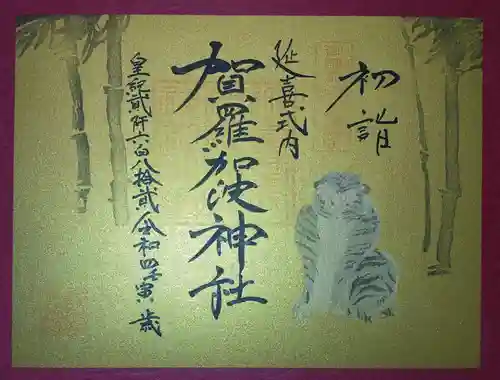 初詣
延喜式内
賀羅加波神社
皇紀貳阡六百八拾貳 令和四壬寅歳